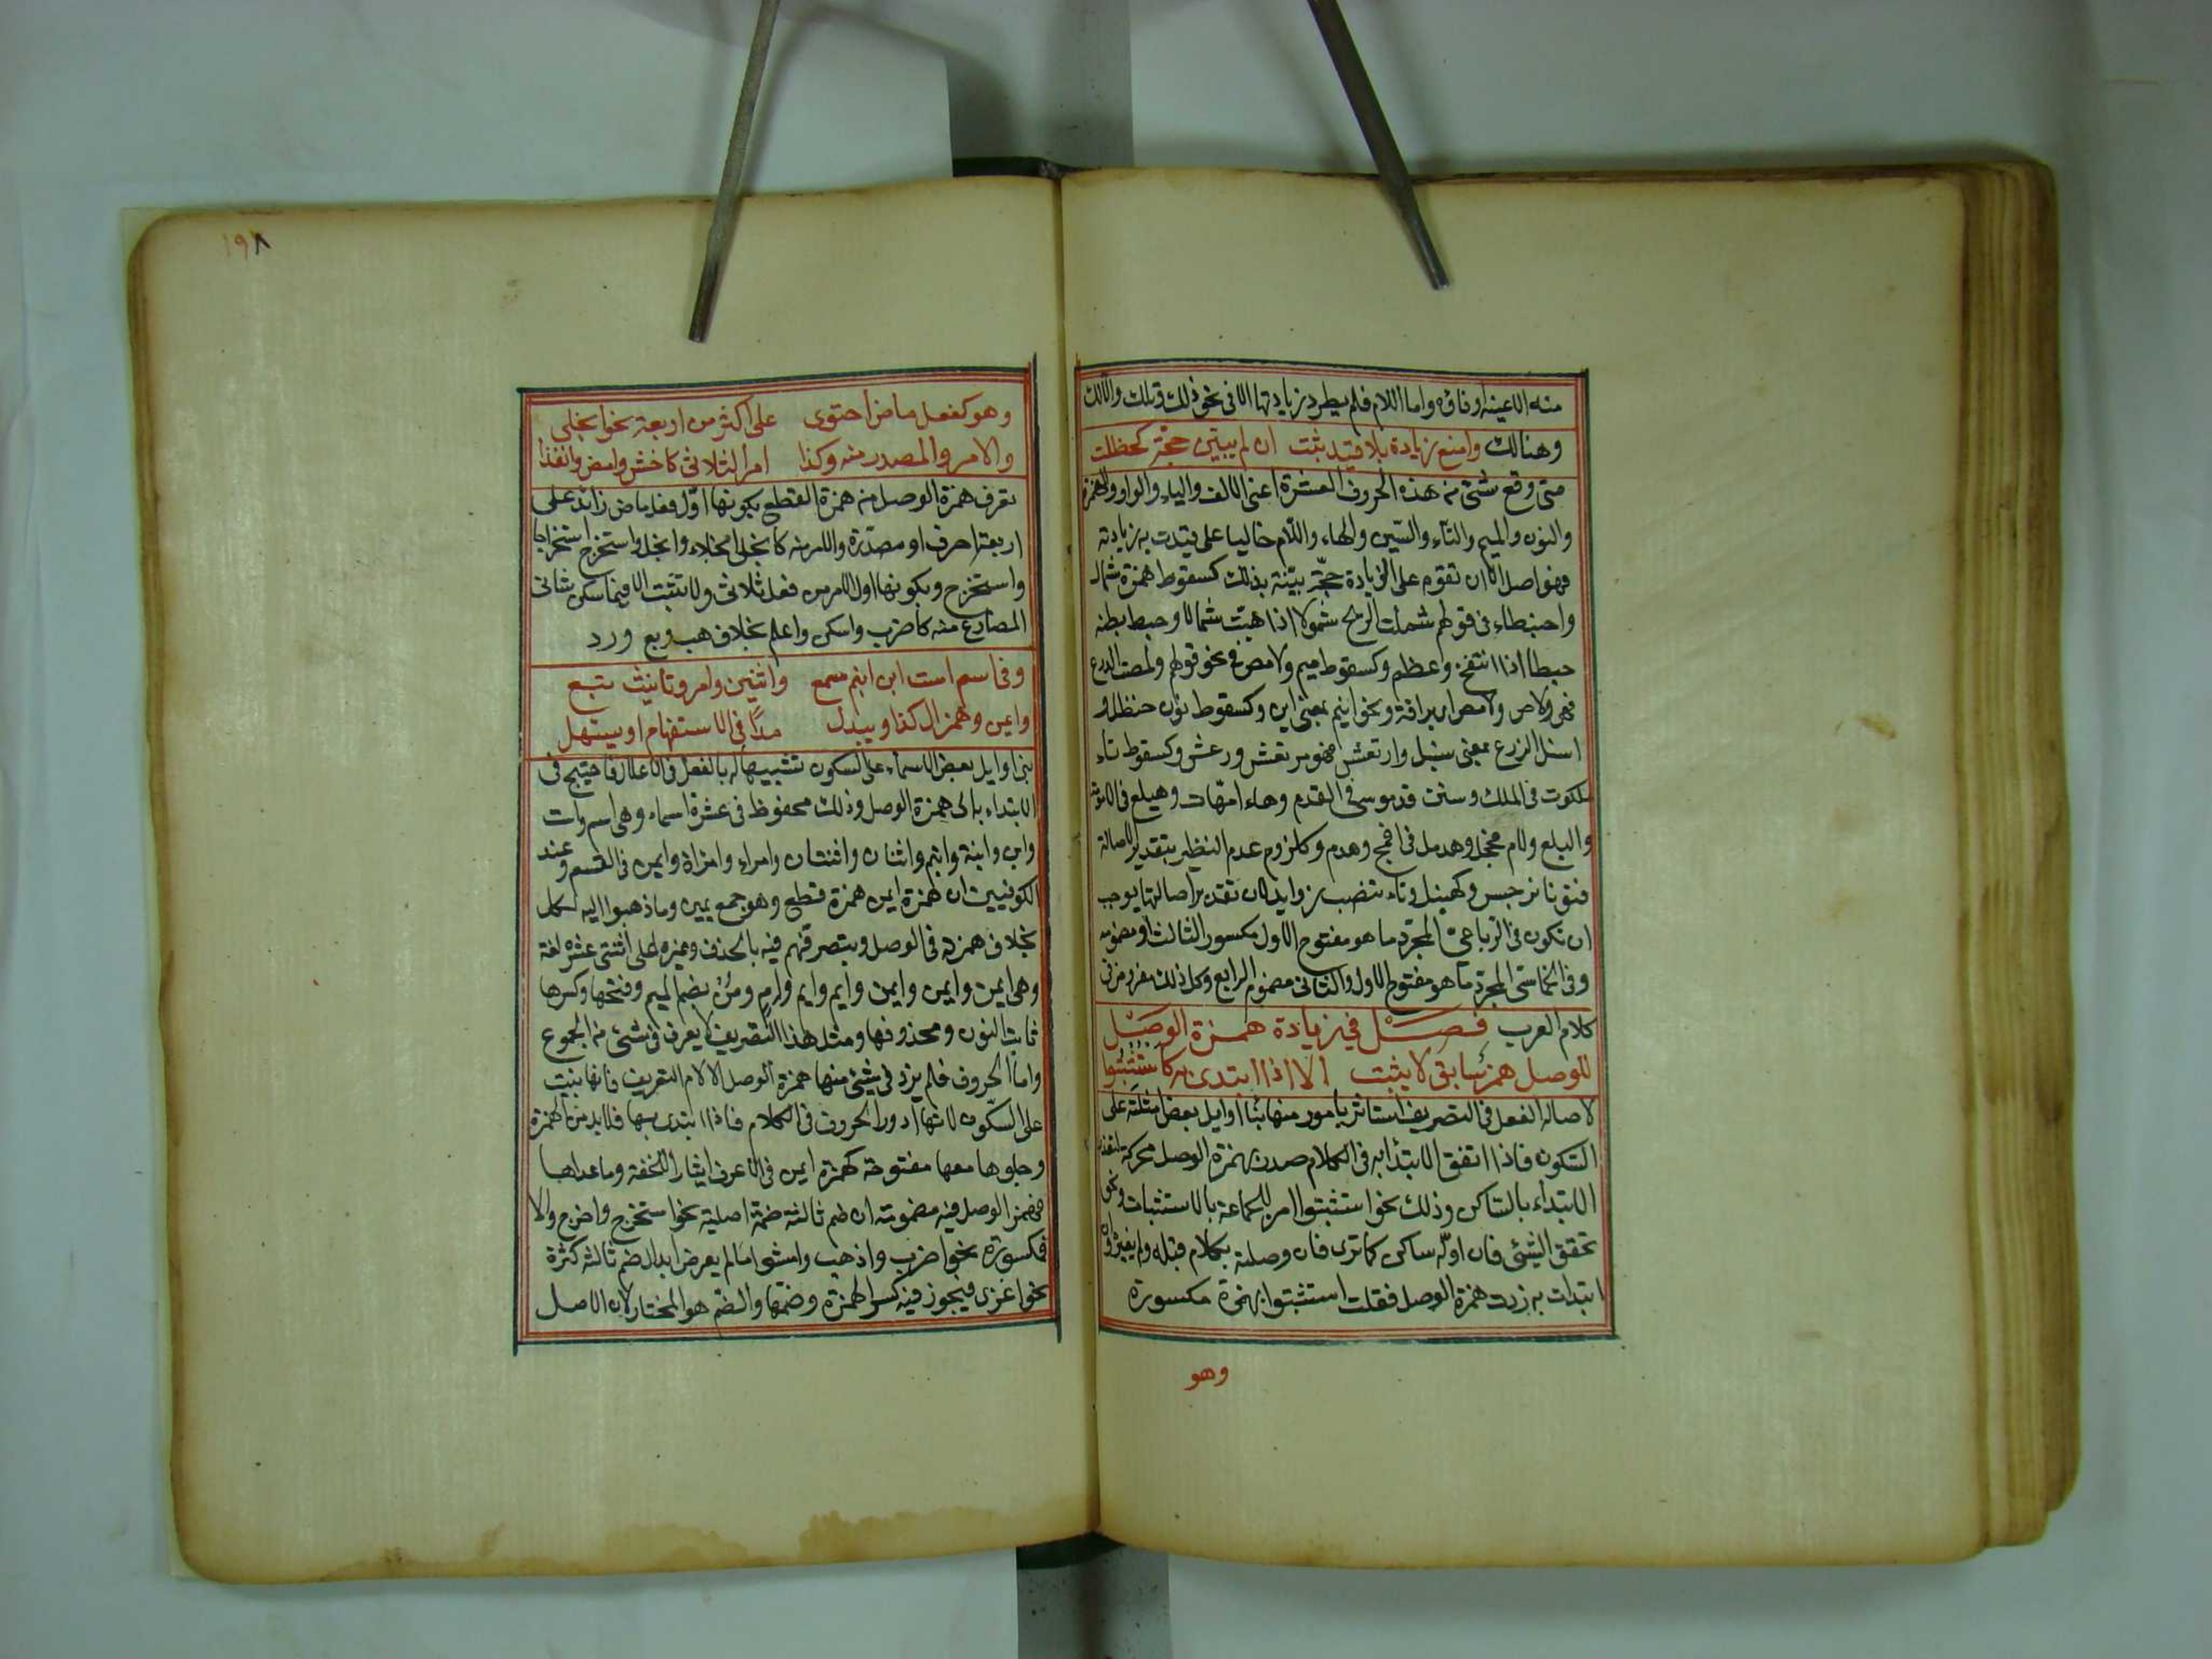 منه الا عينه او فاؤه واما اللام فلم يطرد زيادتها الا في نحو ذلك وتلك والالك
وهنالك وامنع زيادة بلا قيد ثبت ان لم يبين حجة كحظلت
متى وقع شئ من هذه الحروف العشرة اعني الالف والياء والواو والهمزة
والنون والميم والتاء والسين والهاء واللام خاليا عما قيدت به زيادته
فهو اصل الا ان تقوم على الزيادة حجة بينة بذلك كسقوط همزة شمال
واحبنطاء في قولهم شملت الريح شمولا اذا هبت شمالا وحبط بطنه
حبطا اذا انتفخ وعظم وكسقوط ميم ولامص في نحو قولهم ولصت الدرع
فهي ولاص ولامص اي براقة ونحو ابنم بمعنى ابن وكسقوط نون حنظل و
اسبل الزرع بمعنى سنبل وارتعش فهو مرتعش ورعش وكسقوط تاء
ملكوت في الملك وسين قدموس في القدم وهاء امهات وهبلع في الامومة
والبلع ولام فحجل وهدمل في افحج وهدم وكلزوم عدم النظير بتقدير الاصالة
فنونا نرجس وكهنبل وتاء تنضب زوايد لان تقدير اصالتها يوجب
ان تكون في الرباعي المجرد ما هو مفتوح الاول مكسور الثالث او مضمومه
وفي الخماسي المجرد ما هو مفتوح الاول والثاني مضموم الرابع وكل ذلك مفر من في
كلام العرب فصل في زيادة همزة الوصل
للوصل همز سابق لا يثبت الا اذا ابتدى به كاستثبتوا
لاصالة الفعل في التصريف استاثر بامور منها بناء اوايل بعض امثلته على
السكون فاذا اتفق الابتدا به في الكلام صدر بهمزة الوصل محركة لتعذر
الابتداء بالساكن وذلك نحو استثبتوا امر للجماعة بالاستثبات ونحو
تحقق الشئ فان اوله ساكن كما ترى فان وصلته بكلام قبله وان
ابتدات به زدت همزة الوصل فقلت استثبتوا بهمزة مكسورة
وهو
١٩٨
وهو كفعل ماض احتوى على اكثر من اربعة نحو انجلى
والامر والمصدر منه وكذا امر الثلاثي كاخش وامض وانفذا
تعرف همزة الوصل من همزة القطع بكونها اول فعل ماض زائد على
اربعة احرف او مصدره والامر منه كانجلى انجلاء وانجل واستخرج استخراجا
واستخرج وبكونها اول الامر من فعل ثلاثي ولا تثبت الا فيما سكن ثاني
المضارع منه كاضرب واسكن واعلم بخلاف هب وبع ورد
وفي اسم است ابن ابنم سمع واثنين وامرء وتانيث تبع
وايمن وهمز ال كذا ويبدل مدا في الاستفهام او يسهل
بني اوايل بعض الاسماء على السكون تشبيها له بالفعل في الاعلال فاحتيج في
الابتداء به الى همزة الوصل وذلك محفوظ في عشرة اسماء وهي اسم واست
وابن وابنة وابنم واثنان واثنتان وامراء وامراة وايمن في القسم وعند
الكوفيين ان همزة ايمن همزة قطع وهو جمع يمين وما ذهبوا اليه
بخلاف همزته في الوصل وبتصرفهم فيه بالحذف وغيره على اثنتي عشرة لغة
وهي ايمن وايمن وايمن وايم وايم وام ومن بضم الميم وفتحها وكسرها
ثابت النون ومحذوفها ومثل هذا التصريف لا يعرف في شئ من الجموع
واما الحروف فلم يزد في شئ منها همزة الوصل الا لام التعريف فانها بنيت
على السكون لانها ادور الحروف في الكلام فاذا ابتدى بها فلا بد من الهمزة
وجلوها معها مفتوحة كهمزة ايمن في الاعرف ايثار الخفة وما عداها
فهمز الوصل فيه مضمومة ان ضم ثالثه ضمة اصلية نحو استخرج واخرج والا
فمكسورة نحو اضرب واذهب وامشوا ما لم يعرض ابدال ضم ثالثه كسرة
نحو اغزي فيجوز فيه كسر الهمزة وضمها والضم هو المختار لان الاصل